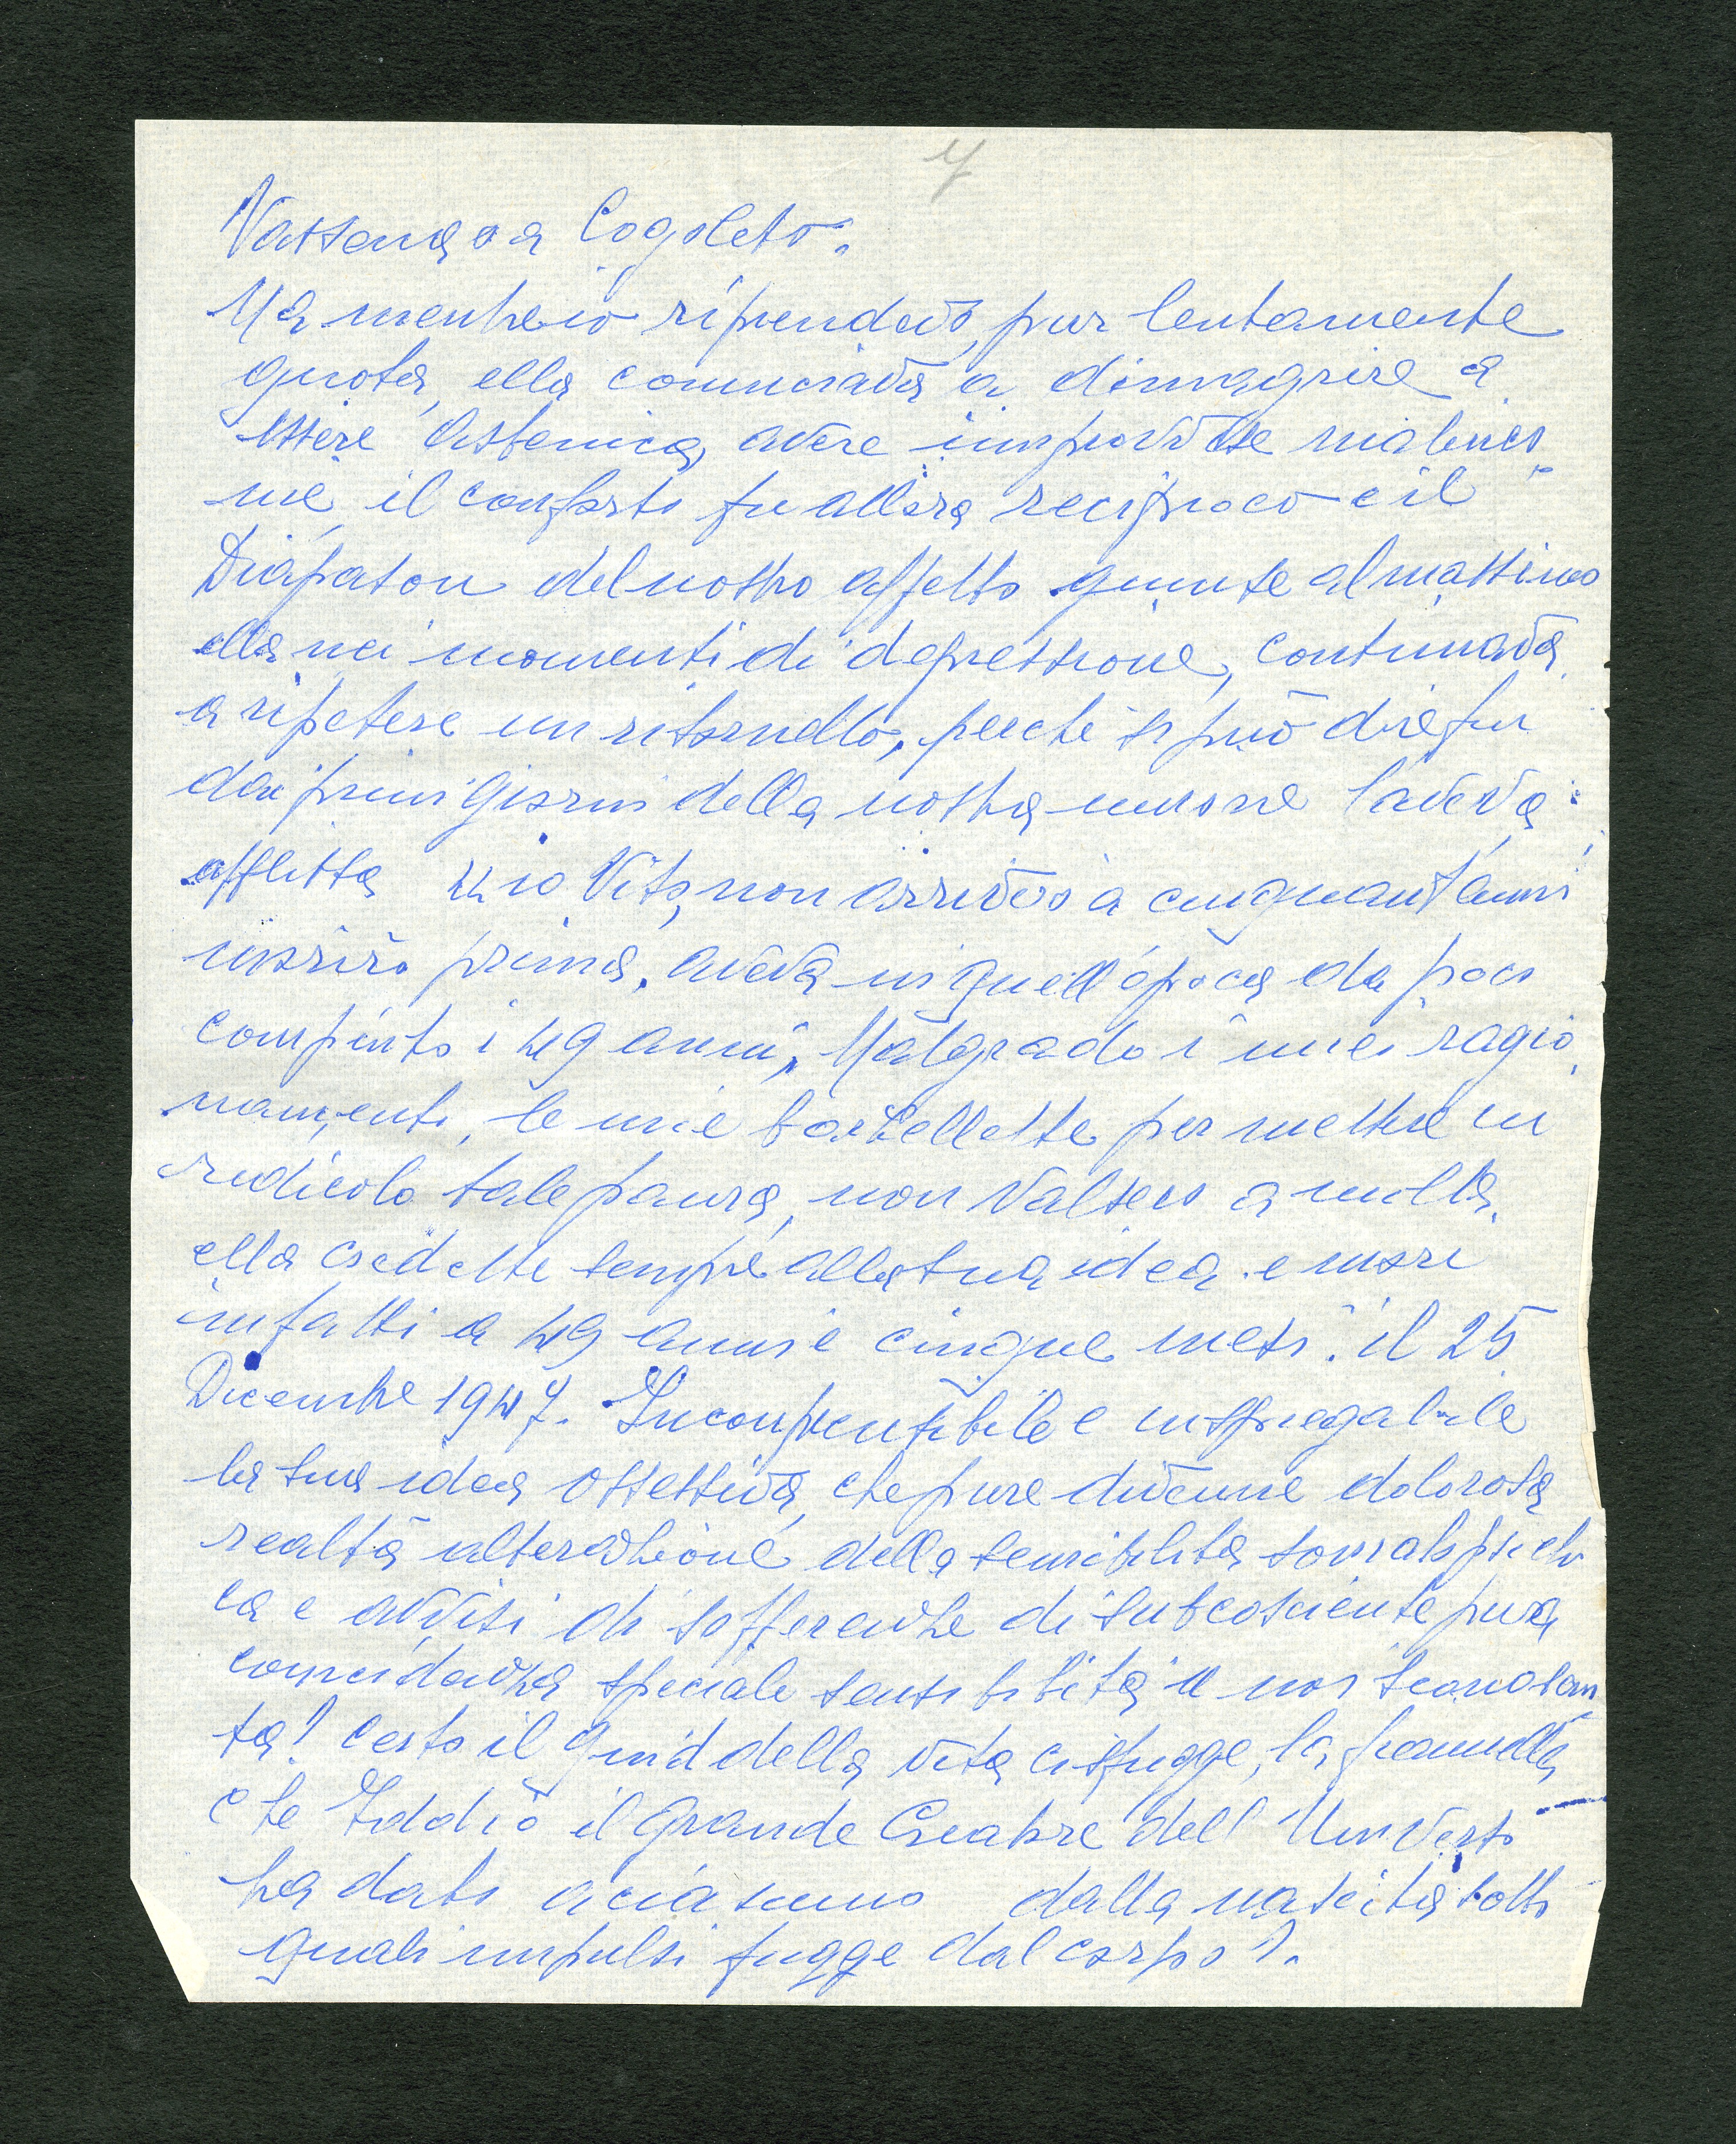 7
Vassena o a Cogoleto.
Ma mentre io riprendevo, pur lentamente
quota, ella cominciava a dimagrire a
essere astenica, avere improvvise malinco
nie, il conforto fu allora reciproco e il
Diapason del nostro affetto giunse al massimo
ella nei momenti di depressione, continuava
a ripetere un ritornello, perché si può dire fin
dai primi giorni della nostra unione l'aveva
afflitta io Vito, non arriverò a cinquant'anni
morirò prima. aveva in quell'epoca da poco
compiuto i 49 anni, Malgrado i miei ragio
namenti, le mie barzellette per mettere in
ridicolo tale paura, non valsero a nulla,
ella credette sempre alla sua idea e morì
infatti a 49 anni e cinque mesi: il 25
Dicembre 1947. Incomprensibile e inspiegabile
la sua idea ossessiva, che pure divenne dolorosa
realtà alterazione della sensibilità psichi
ca e avvisi di sofferenze di subcosciente pura
coincidenza speciale sensibilità a noi
ta! Certo il quid della vita ci sfugge, la fiammella
che Iddio il grande Creatore dell'Universo
ha dato a ciascuno dalla nascita sotto
quali impulsi fugge dal corpo?.